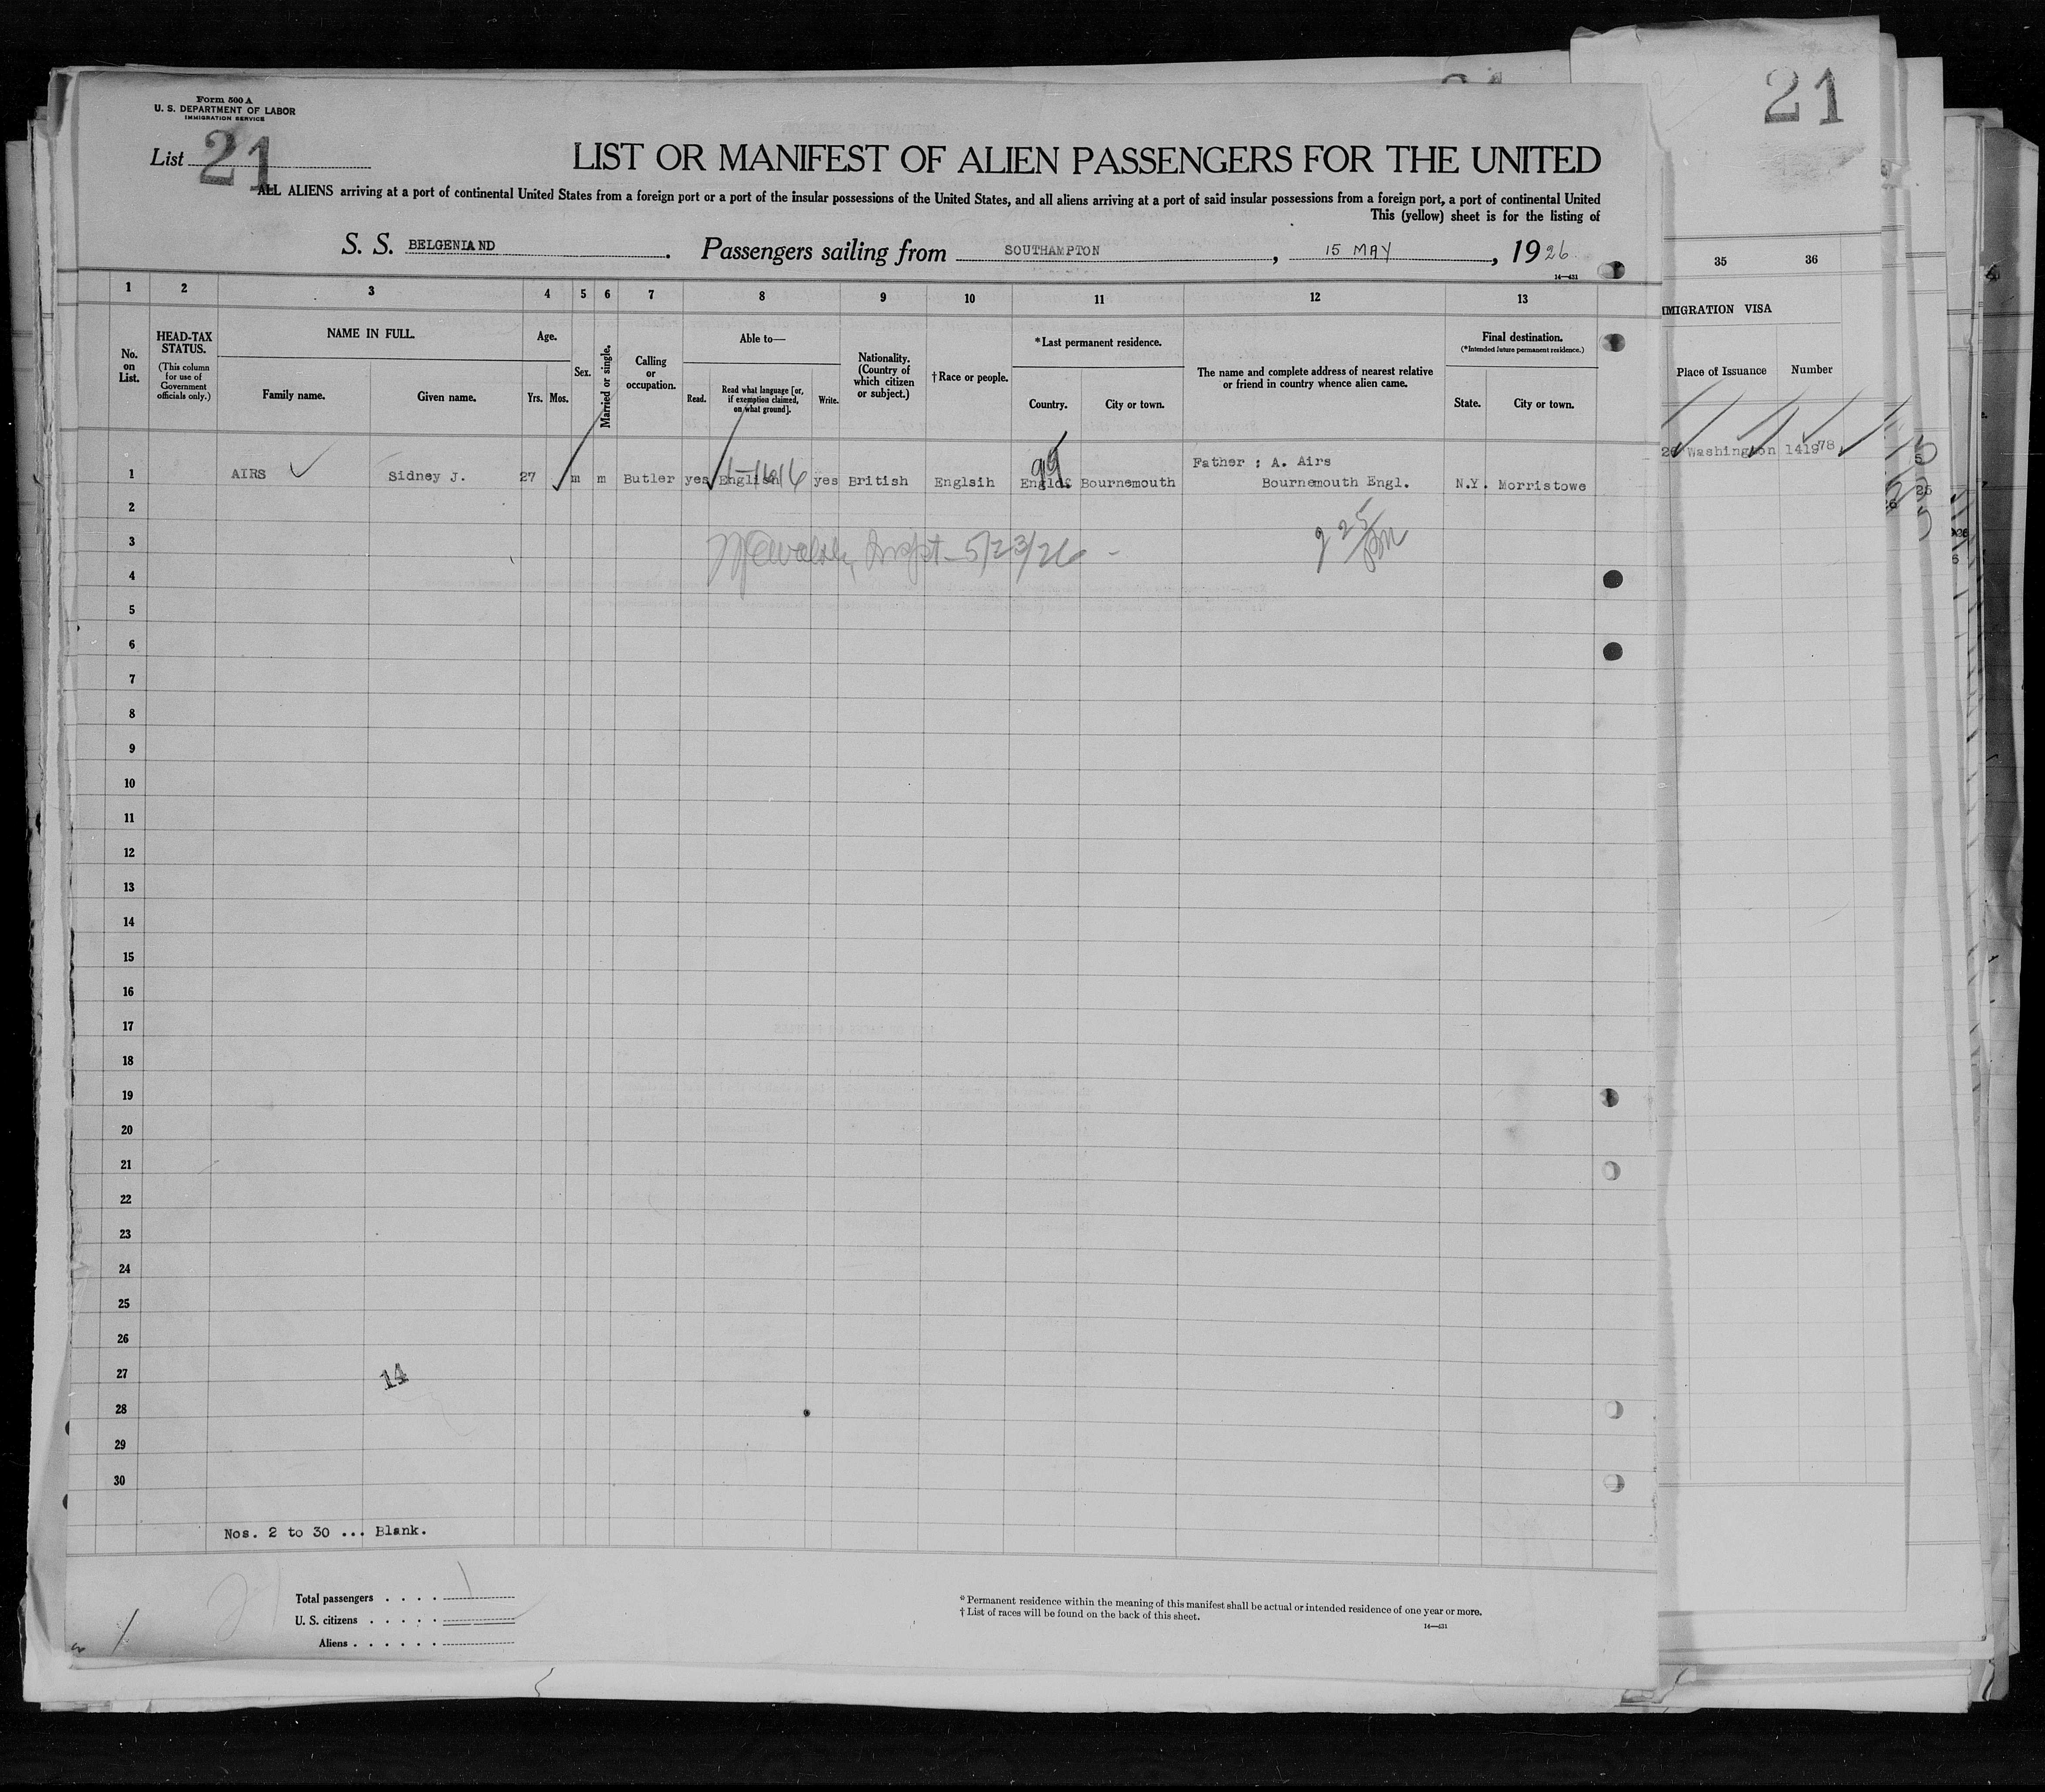 Form 500 A
U. S. DEPARTMENT OF LABOR
IMMIGRATION SERVICE
List 21
21
LIST OR MANIFEST OF ALIEN PASSENGERS FOR THE UNITED
ALL ALIENS arriving at a port of continental United States from a foreign port or a port of the insular possessions of the United States, and all aliens arriving at a port of said insular possessions from a foreign port, a port of continental United
This (yellow) sheet is for the listing of
S. S. BELGENIAND . Passengers sailing from SOUTHAMPTON , 15 MAY , 1926
14—431
1 2 3 4 5 6 7 8 9 10 11 12 13 35 36
No. on List.
HEAD-TAX STATUS.
(This column for use of Government officials only.)
NAME IN FULL.
Family name. Given name.
Age.
Yrs. Mos.
Sex.
Married or single.
Calling or occupation.
Able to—
Read. Read what language [or, if exemption claimed, on what ground]. Write.
Nationality. (Country of which citizen or subject.)
†Race or people.
*Last permanent residence.
Country. City or town.
The name and complete address of nearest relative or friend in country whence alien came.
Final destination.
(*Intended future permanent residence.)
State. City or town.
MIGRATION VISA
Place of Issuance Number
1 AIRS Sidney J. 27 m m Butler yes English yes British Englsih Engld Bournemouth Father : A. Airs N.Y. Morristowe 26 Washington 141978
Bournemouth Engl.
99
2
3 Inspt 5/23/26 - 2 25/PM
4
5
6
7
8
9
10
11
12
13
14
15
16
17
18
19
20
21
22
23
24
25
26
27
14
28
29
30
Nos. 2 to 30 ... Blank.
Total passengers . . . . 1
U. S. citizens . . . . .
Aliens . . . . . .
* Permanent residence within the meaning of this manifest shall be actual or intended residence of one year or more.
† List of races will be found on the back of this sheet.
14—431